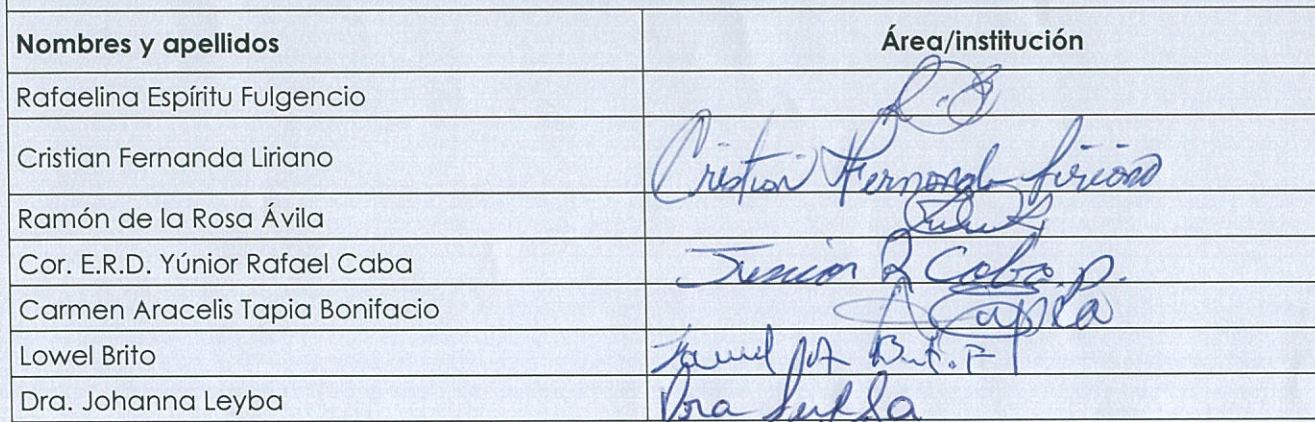 Nombres y apellidos Área/institución
Rafaelina Espíritu Fulgencio
Cristian Fernanda Liriano Cristian Fernanda Liriano
Ramón de la Rosa Ávila
Cor. E.R.D. Yúnior Rafael Caba Junior R Caba p.
Carmen Aracelis Tapia Bonifacio Tapia
Lowel Brito
Dra. Johanna Leyba